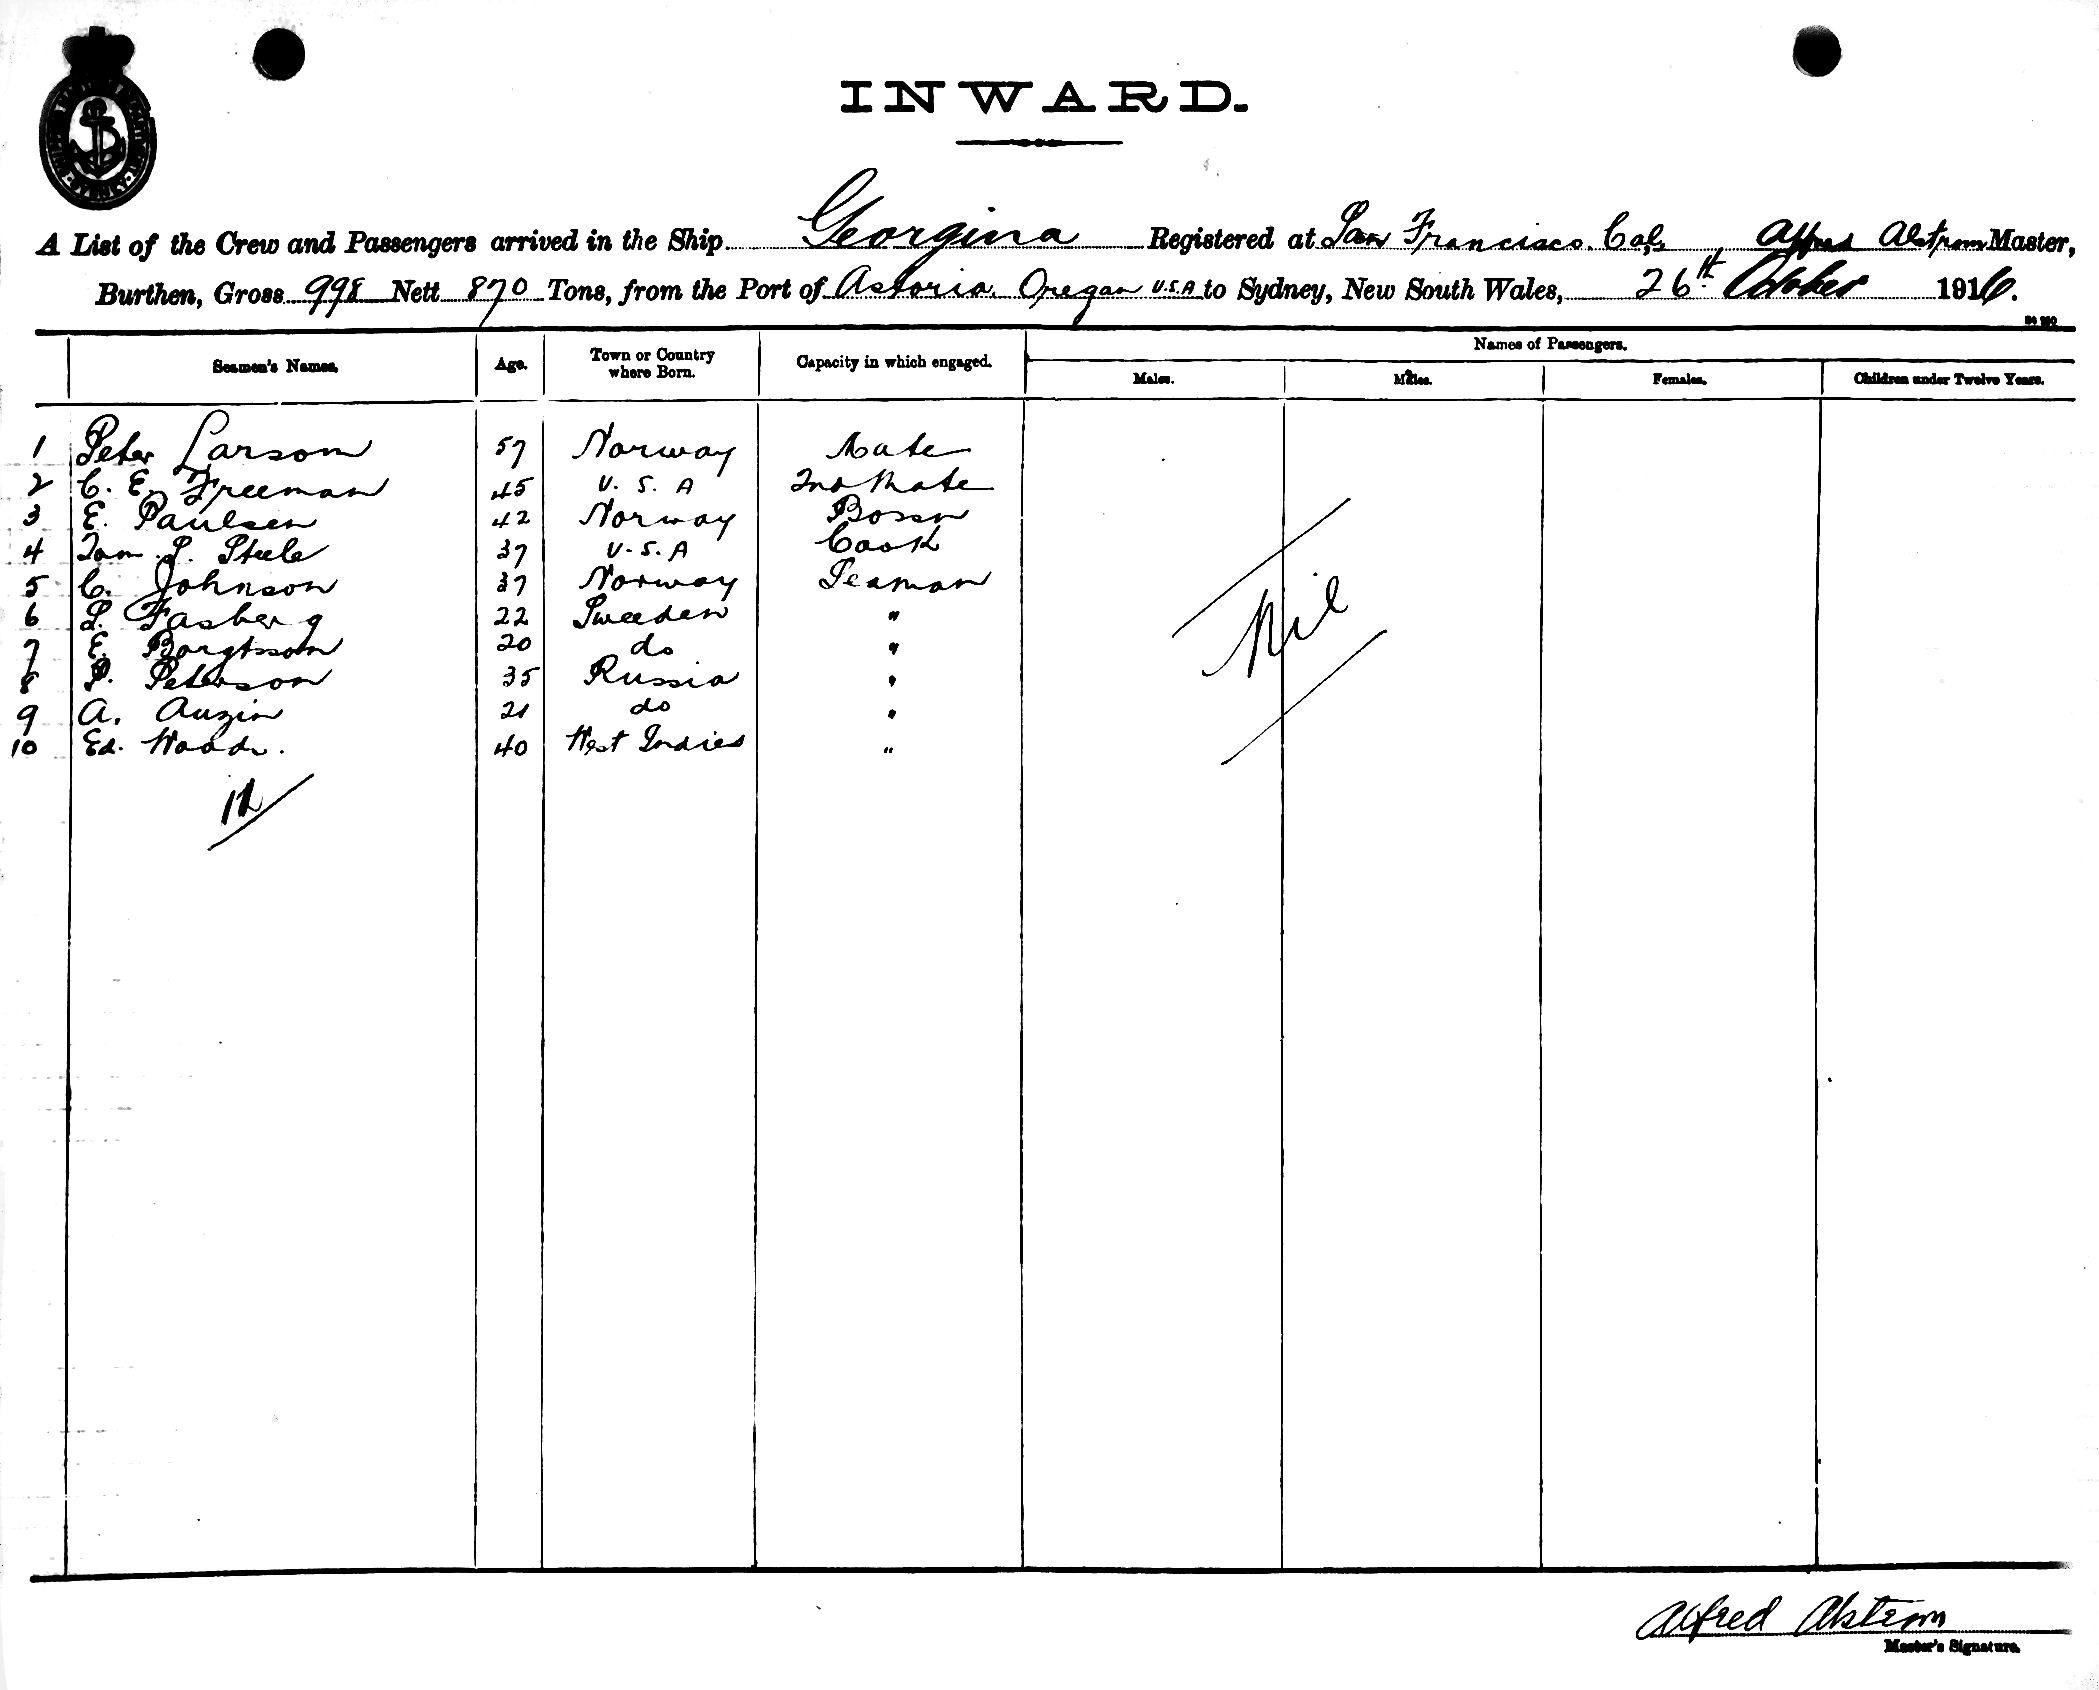 INWARD.
A List of the Crew and Passengers arrived in the Ship Georgina Registered at San Francisco. Cal, Alfred Alstrom Master,
Burthen, Gross 998 Nett 870 Tons, from the Port of Astoria. Oregan U.S.A to Sydney, New South Wales, 26th October 1916.
Seamen's Names. Age. Town or Country where Born. Capacity in which engaged. Names of Passengers.
Males. Males. Females. Children under Twelve Years.
1 Peter Larson 57 Norway Mate
2 C. E. Freeman 45 U. S. A 2nd Mate
3 E. Paulsen 42 Norway Bossn
4 Tom P. Steele 37 U. S. A Cook
5 C. Johnson 37 Norway Seaman
6 S. Fasberg 22 Sweeden "
7 E. Borgtsson 20 do "
8 P. Peterson 35 Russia "
9 A. Auzin 21 do "
10 Ed. Woods. 40 West Indies "
Nil
Alfred Alstrom
Master's Signature.